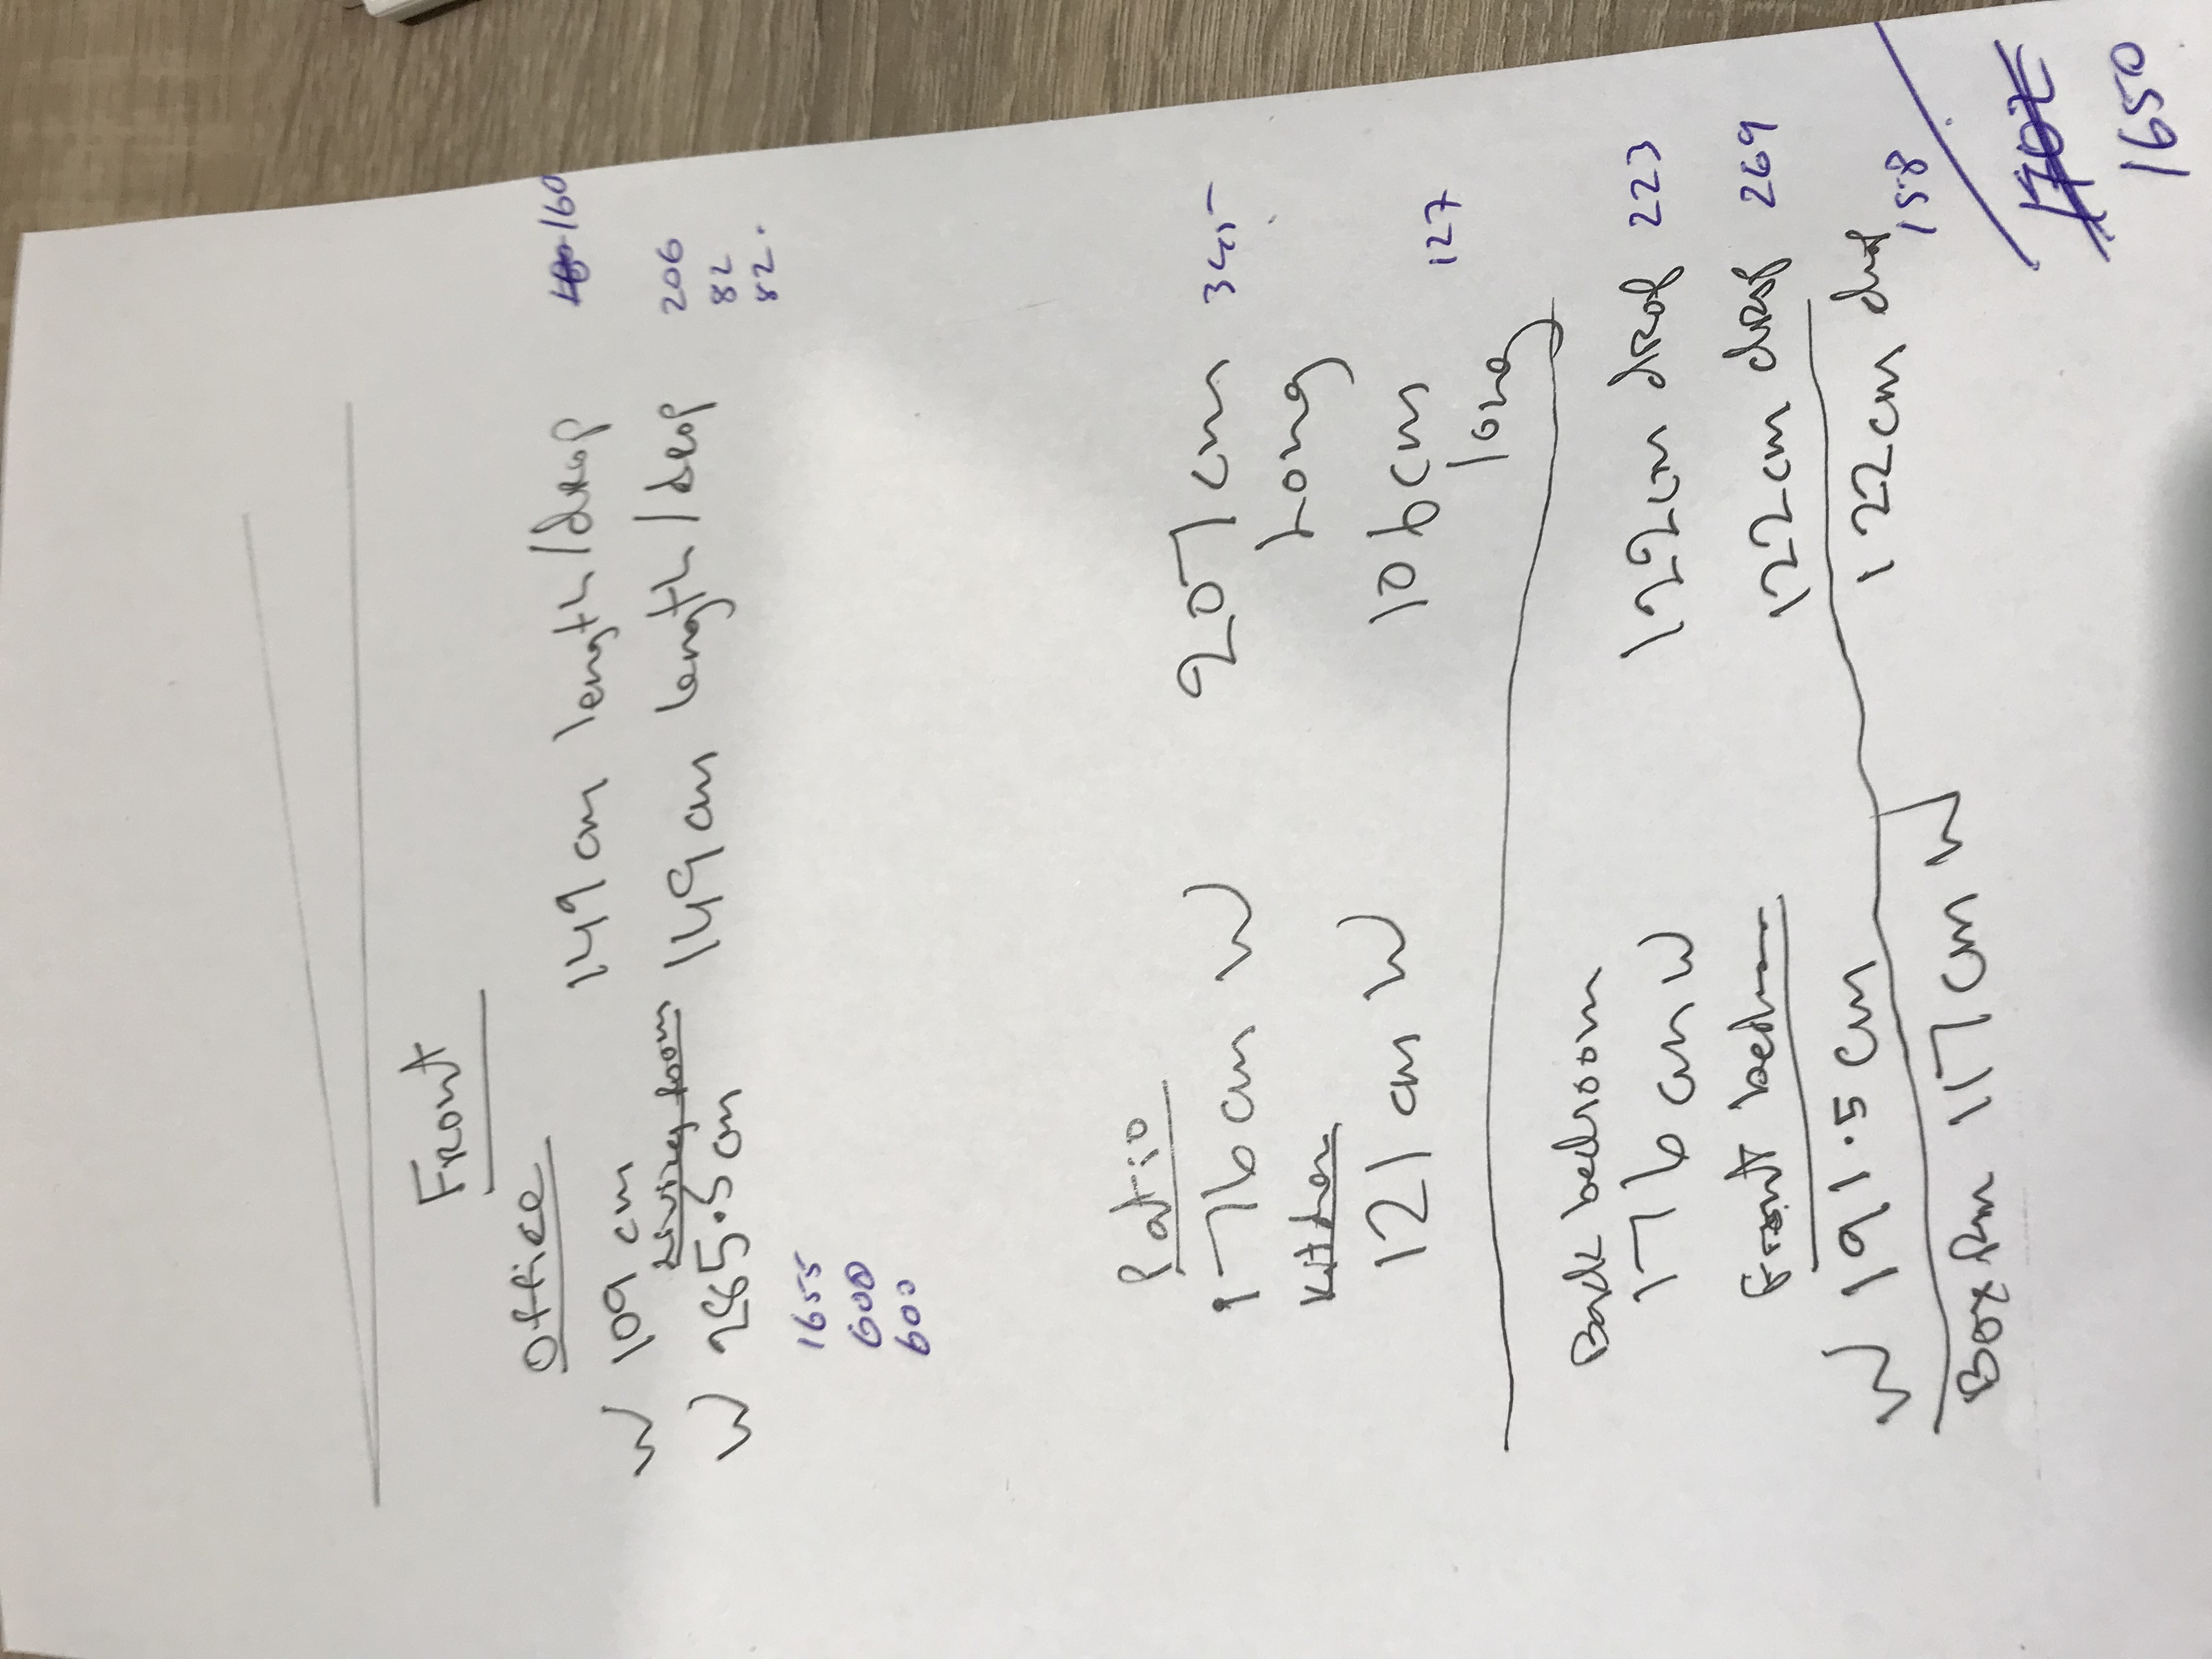 Front
Office
W 109 cm 149 cm length/drop 160
Living room
W 265.5 cm 149 cm length/drop 206
82
82.
1655
600
600
Patio
176 cm W 207 cm 345
Long
Kitchen
121 cm W 106 cm 127
long
Back bedroom
176 cm W 122 cm drop 223
Front bedroom
W 191.5 cm 122 cm drop 269
Box Rm 117 cm W 122 cm drop
158
1650